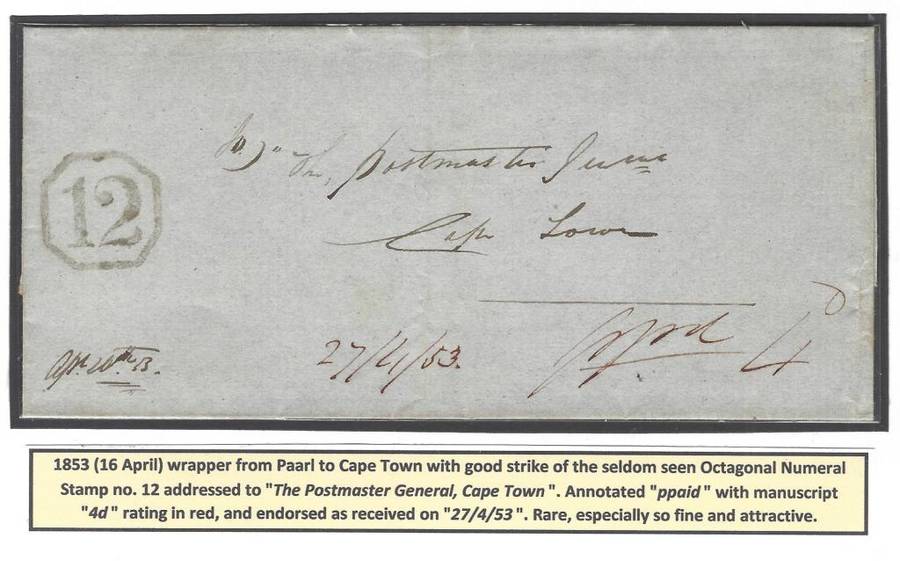 12
Postmaster
Cape Town
ppd 4d
27/4/53.
1853 (16 April) wrapper from Paarl to Cape Town with good strike of the seldom seen Octagonal Numeral
Stamp no. 12 addressed to "The Postmaster General, Cape Town". Annotated "ppaid" with manuscript
"4d" rating in red, and endorsed as received on "27/4/53". Rare, especially so fine and attractive.